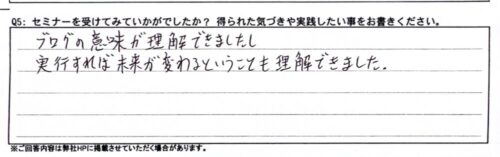 Q5: セミナーを受けてみていかがでしたか? 得られた気づきや実践したい事をお書きください。
ブログの意味が理解できましたし
実行すれば未来が変わるということも理解できました.
※ご回答内容は弊社HPに掲載させていただく場合があります。